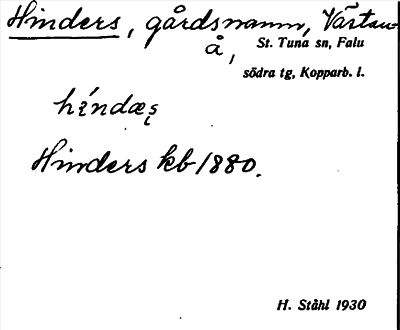 Hinders, gårdsnamn, Västan
å, St. Tuna sn, Falu
södra tg, Kopparb. l.
Hinders kb 1880.
H. Ståhl 1930